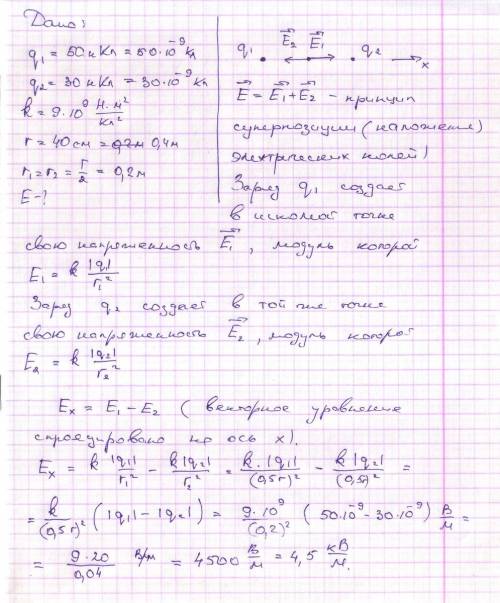 Дано:
q₁ = 50 нКл = 50·10⁻⁹ Кл
q₂ = 30 нКл = 30·10⁻⁹ Кл
k = 9·10⁹ Н·м²/Кл²
r = 40 см = 0,4 м
r₁ = r₂ = r/2 = 0,2 м
E - ?
q₁ E₂ E₁ q₂ x
E = E₁ + E₂ - принцип
суперпозиции (наложения)
электрических полей)
Заряд q₁ создает
в искомой точке
свою напряженность E₁, модуль которой
E₁ = k |q₁|/r₁²
Заряд q₂ создает в той же точке
свою напряженность E₂, модуль которой
E₂ = k |q₂|/r₂²
Eₓ = E₁ - E₂ (векторное уравнение
спроецировано на ось x).
Eₓ = k|q₁|/r₁² - k|q₂|/r₂² = k·|q₁|/(0,5r)² - k|q₂|/(0,5r)² =
= k/(0,5r)² (|q₁| - |q₂|) = 9·10⁹/(0,2)² (50·10⁻⁹ - 30·10⁻⁹) В/м =
= 9·20/0,04 В/м = 4500 В/м = 4,5 кВ/м.